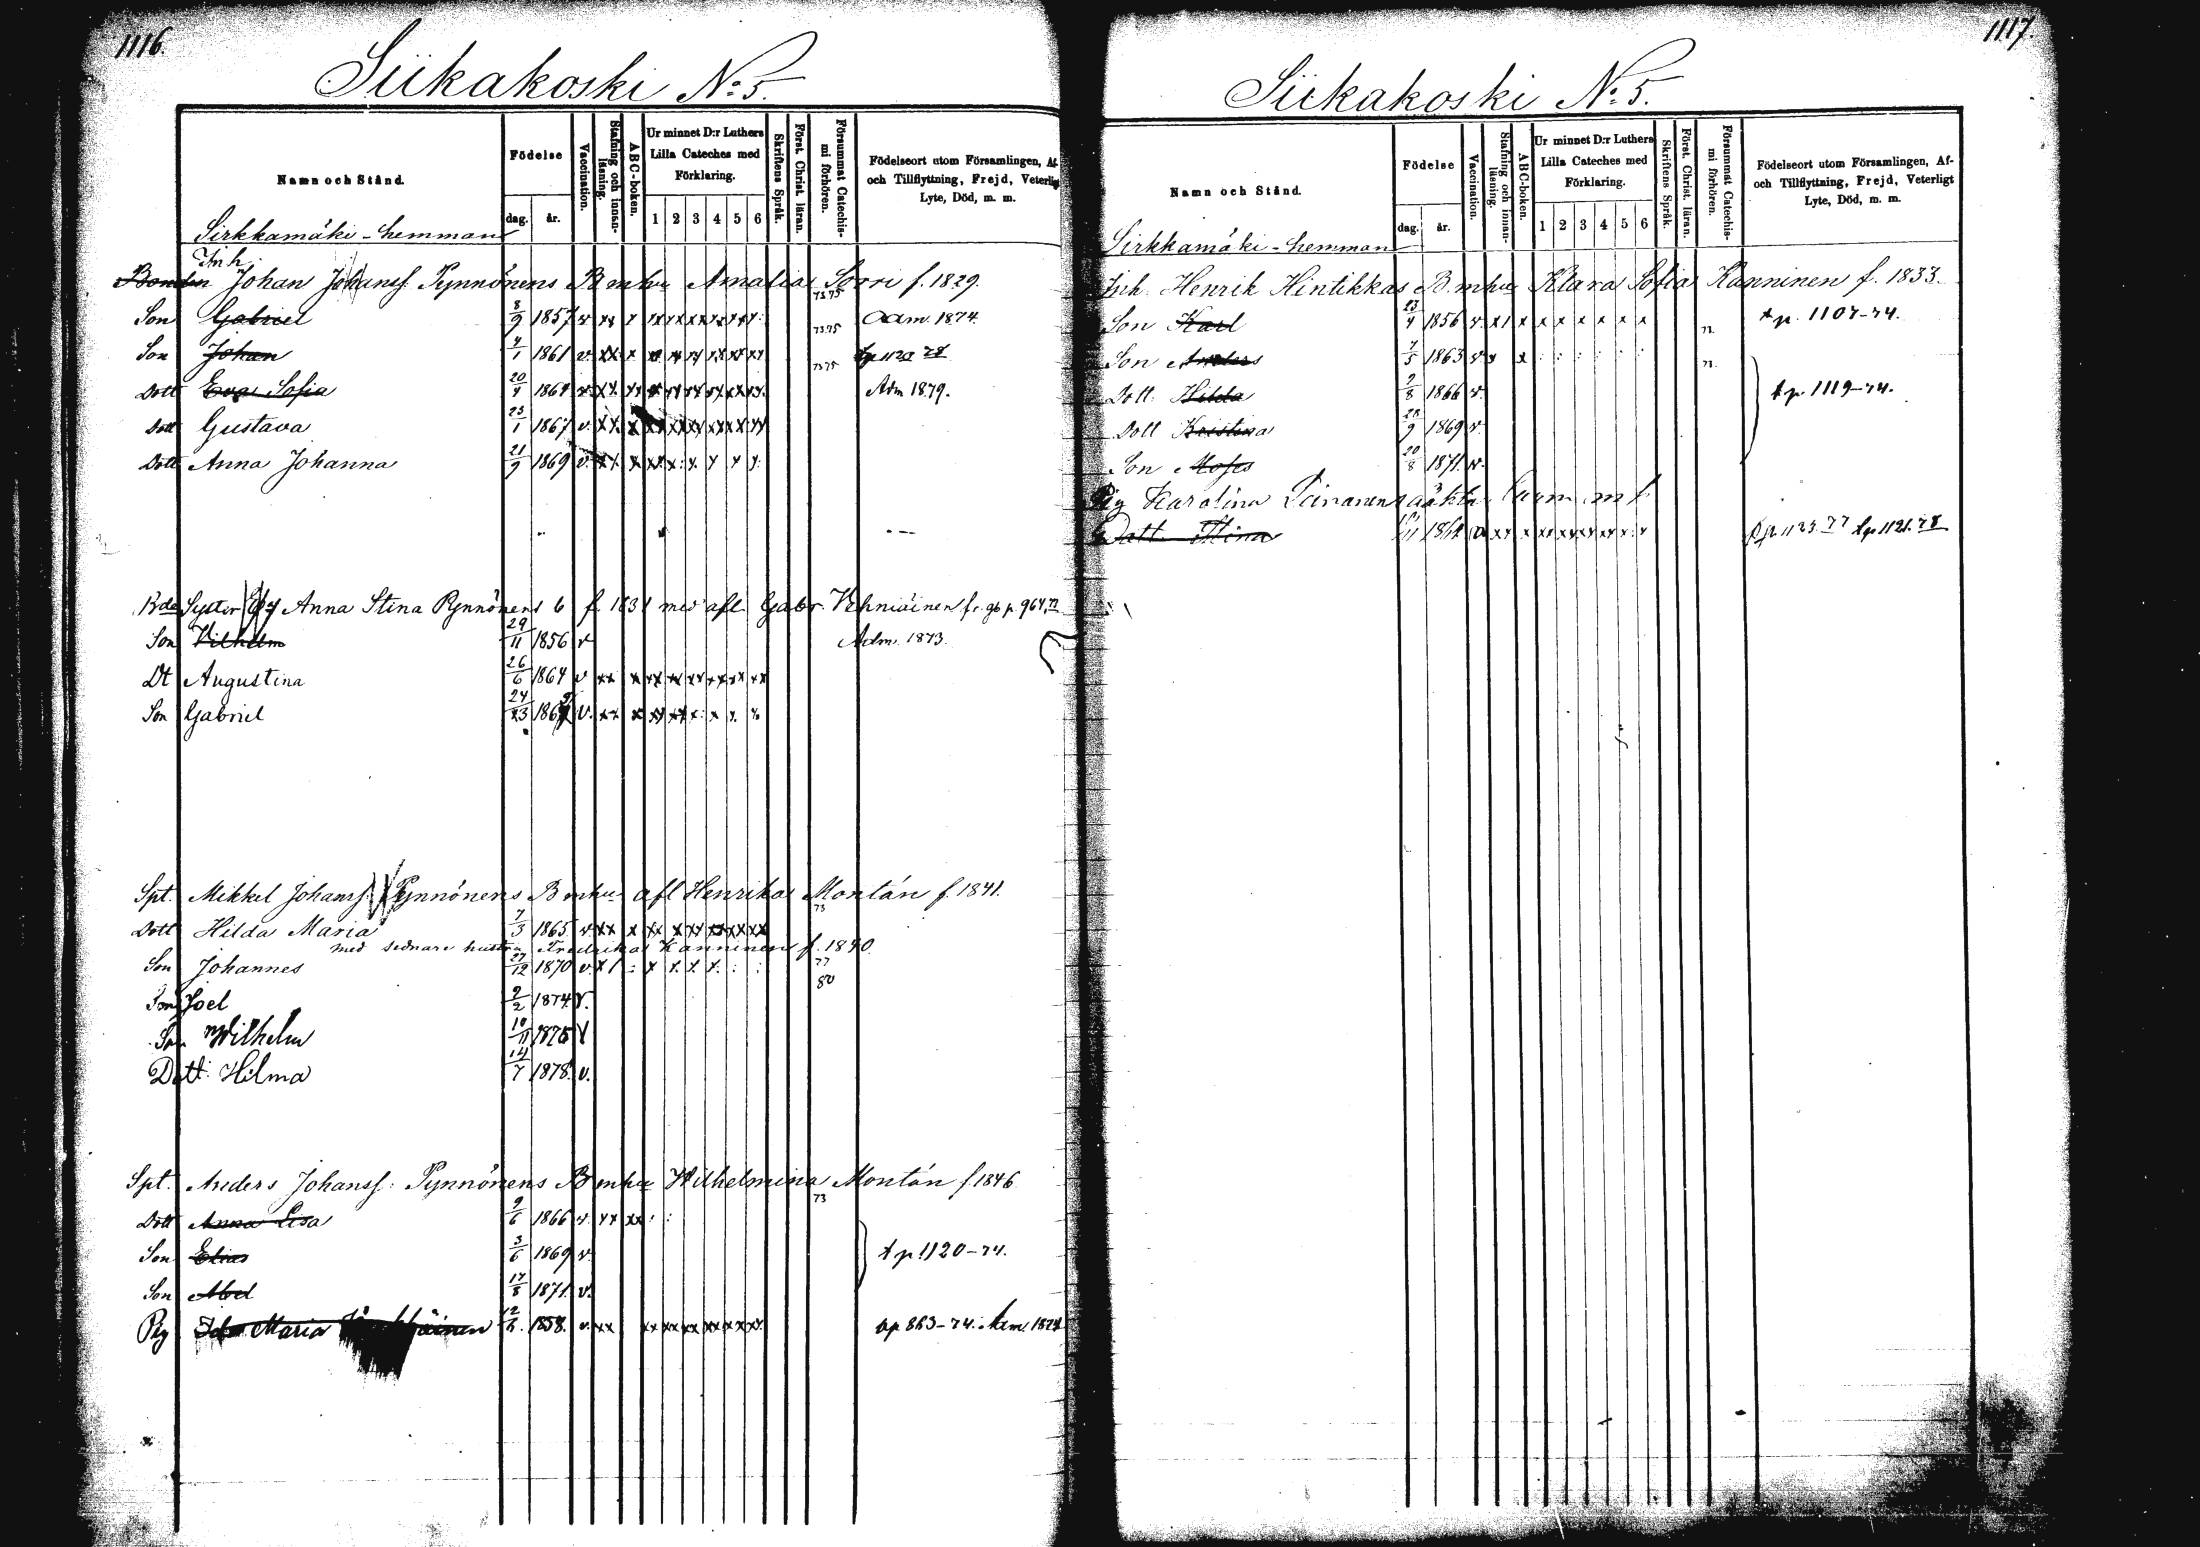 1116.
Siikakoski No 5.
Namn och Stånd.
Födelse
dag.
år.
Vaccination.
Stafning och innan-läsning.
ABC-boken.
Ur minnet D:r Luthers
Lilla Cateches med
Förklaring.
1 2 3 4 5 6
Skriftens Språk.
Först. Christ. läran.
Försummat Catechis-mi förhören.
Födelseort utom Församlingen, Af-
och Tillflyttning, Frejd, Veterligt
Lyte, Död, m. m.
Sirkkamäki-hemman
Inh.
Bonden Johan Johanss. Pynnönens B m hu Amalia Sorri f. 1829.
Son Gabriel 8/9 1857 v 73 75 Adm. 1874.
Son Johan 4/1 1861 v. 73 75
Dott Eva Sofia 20/4 1864 v. 73 75 Adm 1879.
Dott Gustava 23/1 1867 v.
Dott Anna Johanna 21/9 1869 v.
Syster Anna Stina Pynnönens b f. 1831 med afl. Gabr. Vehniäinen fr. gb p. 964,73
Son Vilhelm 29/11 1856 v Adm. 1873.
Dt Augustina 26/6 1864 v
Son Gabriel 24/3 v.
Spt. Mikkel Johanss. Pynnönens B m hu afl Henrika Montán f. 1841.
Dott Hilda Maria 7/3 1865 v 73
med sednare hustru Fredrika Kanninen f. 1840.
Son Johannes 27/12 1870 v. 77 80
Son Joel 9/2 1874 v.
Son Wilhelm 10/11 1875 v
Dott. Hilma 14/7 1878. v.
Spt. Anders Johanss: Pynnönens B m hu Wilhelmina Montán f 1846
Dott Anna Lisa 9/6 1866 v. 73
Son Elias 3/6 1869 v. t p 1120-74.
Son Abel 17/8 1871. v.
Pig Maria 1858. v. 863-74.
1117.
Siikakoski No 5.
Namn och Stånd.
Födelse
dag.
år.
Vaccination.
Stafning och innan-läsning.
ABC-boken.
Ur minnet D:r Luthers
Lilla Cateches med
Förklaring.
1 2 3 4 5 6
Skriftens Språk.
Först. Christ. läran.
Försummat Catechis-mi förhören.
Födelseort utom Församlingen, Af-
och Tillflyttning, Frejd, Veterligt
Lyte, Död, m. m.
Sirkkamäki-hemman
Inh. Henrik Hintikkas B. m hu Klara Sofia Kanninen f. 1833.
Son Karl 23/4 1856 v. 71. t p. 1107-74.
Son Anders 7/5 1863 v 71.
Dott. Hilda 9/8 1866 v. t p 1119-74.
Dott Kristina 28/9 1869 v.
Son Moses 20/8 1871. v.
Pig Karolina
Dott Stina